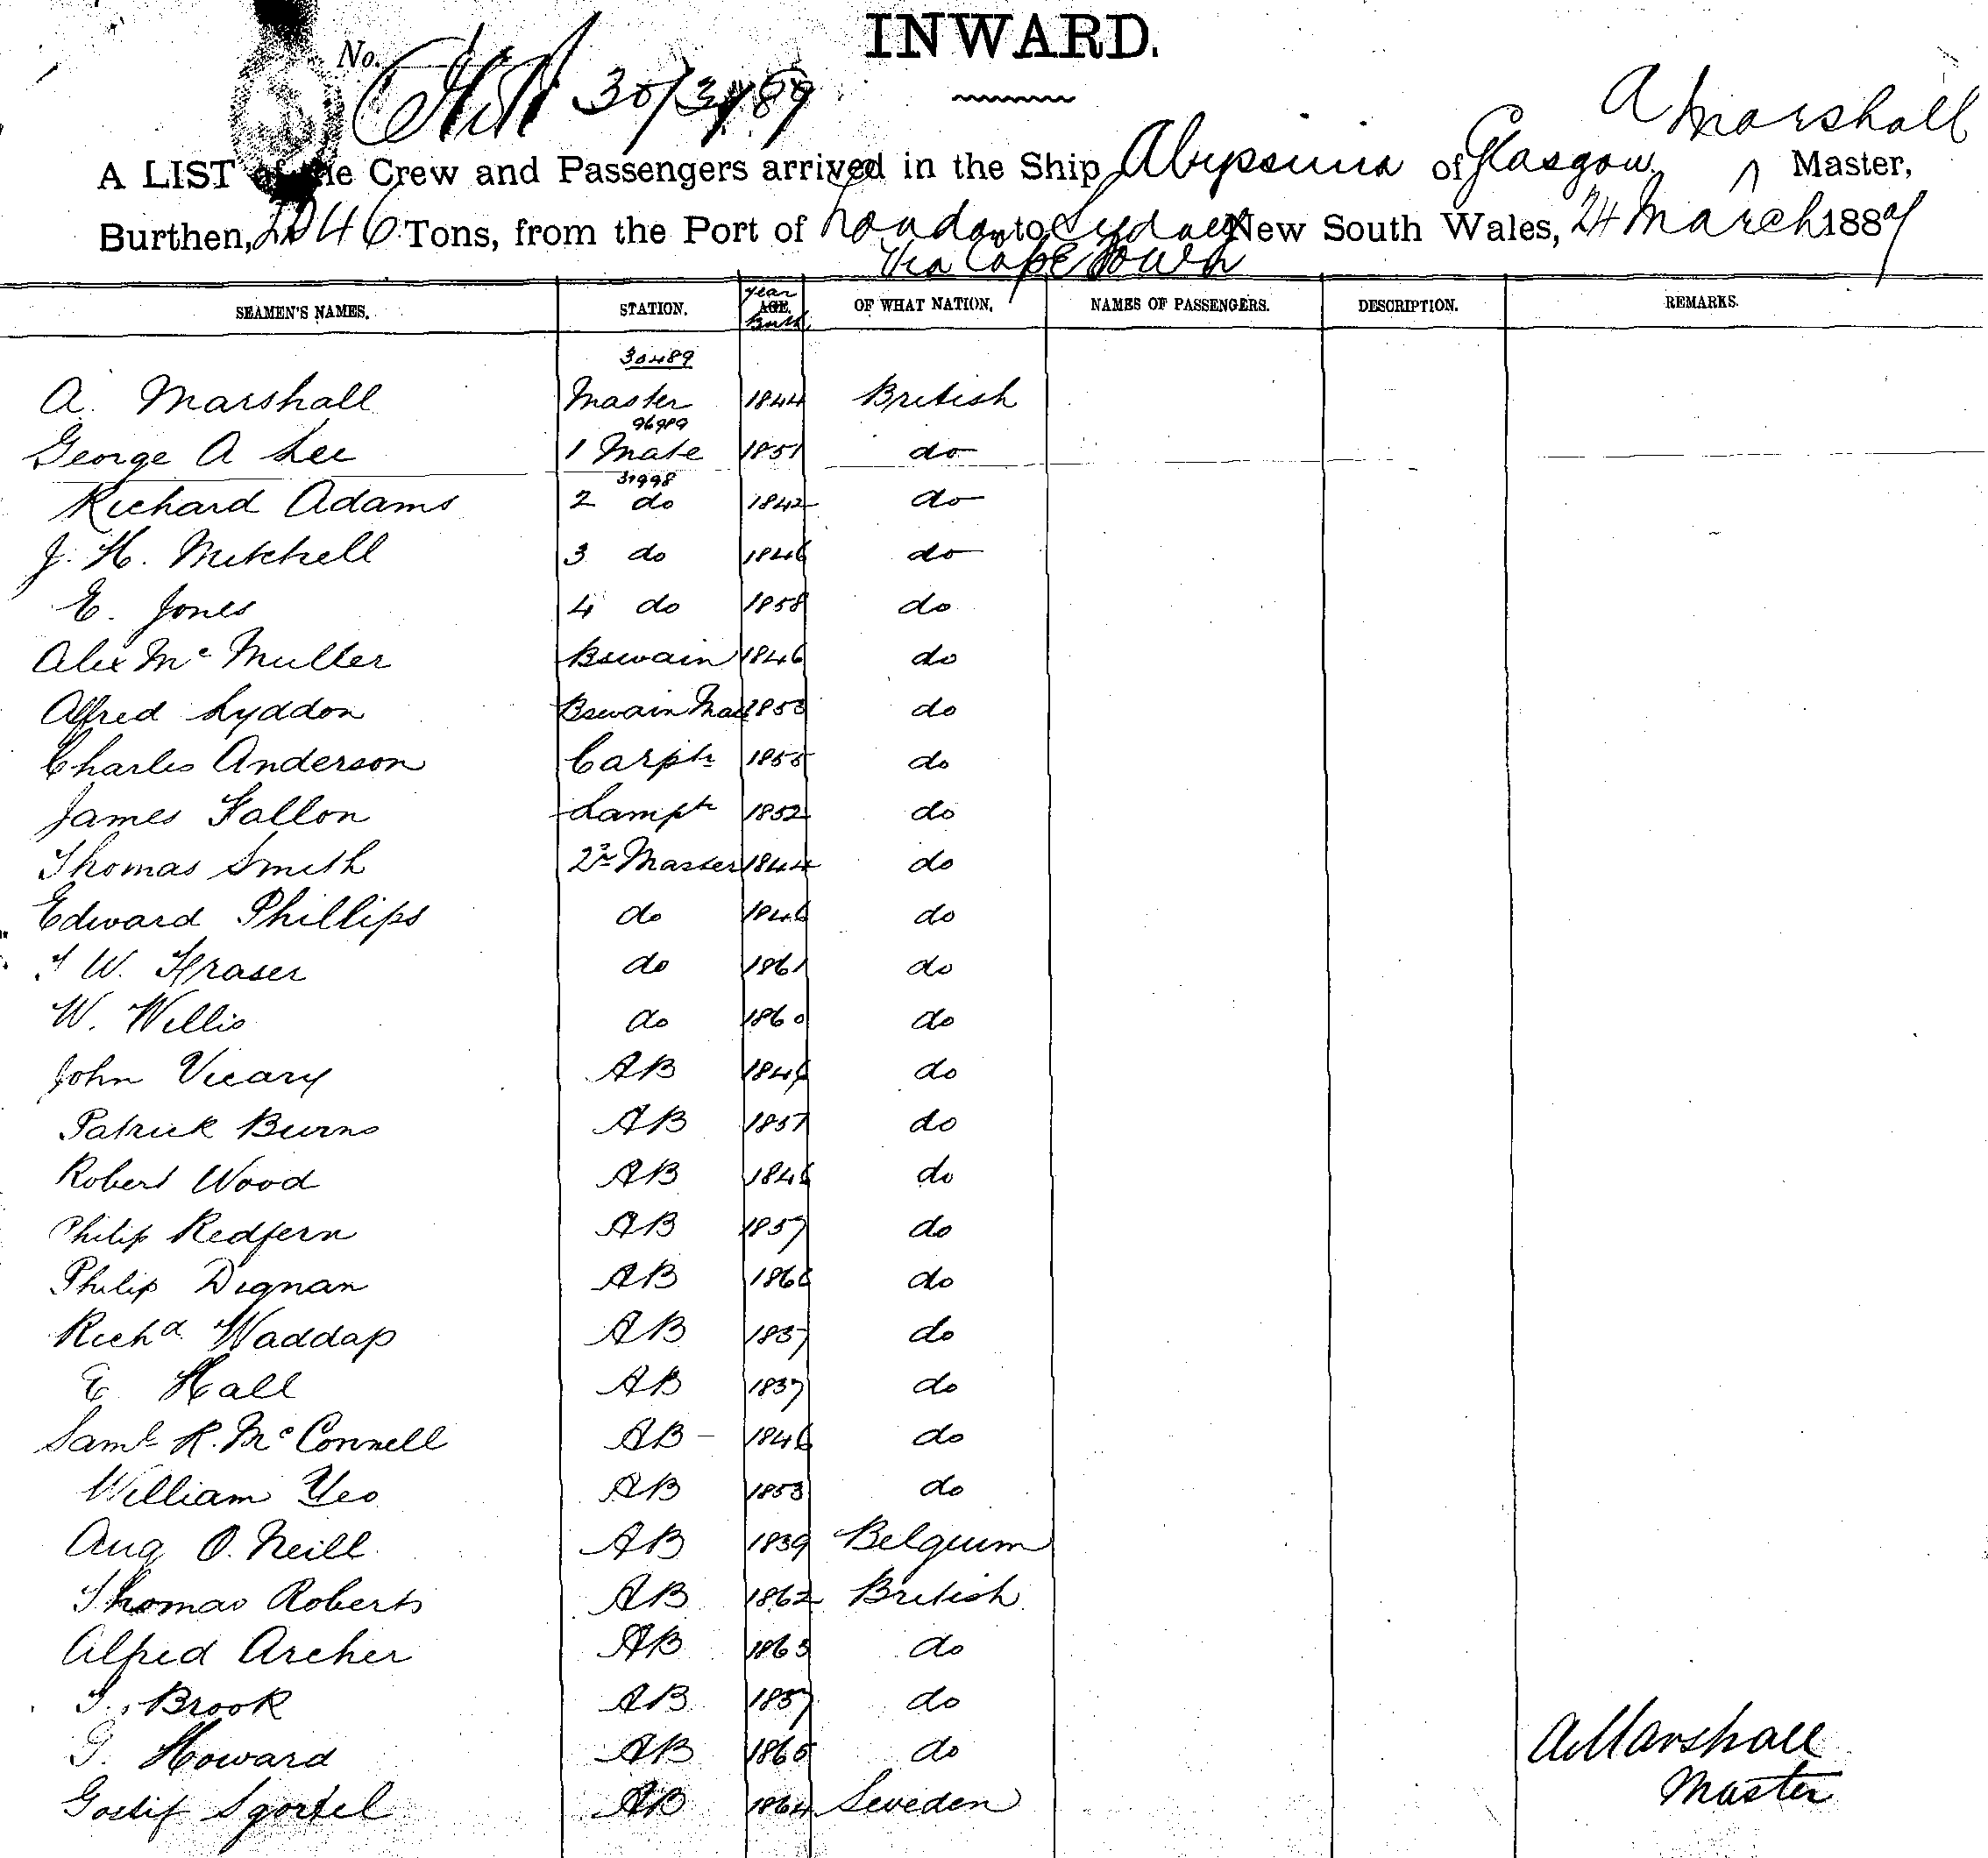 INWARD.
No. 30/3/89
A Marshall
A LIST of the Crew and Passengers arrived in the Ship Abyssinia of Glasgow, Master,
Burthen, 2346 Tons, from the Port of London to Sydney New South Wales, 24 March 1889
Via Cape Town
SEAMEN'S NAMES. STATION. year AGE. Birth OF WHAT NATION. NAMES OF PASSENGERS. DESCRIPTION. REMARKS.
30489
A. Marshall Master 1844 British
96989
George A Lee 1 Mate 1851 do
31998
Richard Adams 2 do 1842 do
J. H. Mitchell 3 do 1846 do
E. Jones 4 do 1858 do
Alex Mc Muller Bswain 1846 do
Alfred Lyddon Bswain Mae 1853 do
Charles Anderson Carptr 1855 do
James Fallon Lampt 1852 do
Thomas Smith 2r Master 1844 do
Edward Phillips do 1846 do
W. Fraser do 1861 do
W. Willis do 1860 do
John Vicary AB 1846 do
Patrick Burns AB 1857 do
Robert Wood AB 1846 do
Philip Redfern AB 1857 do
Philip Dignan AB 1866 do
Richd Waddap AB 1837 do
E Hall AB 1837 do
Saml R. McConnell AB 1846 do
William Yeo AB 1853 do
Aug O. Neill AB 1839 Belgium
Thomas Roberts AB 1862 British
Alfred Archer AB 1863 do
T. Brook AB 1857 do
G. Howard AB 1865 do
AB 1864 Sweden
A Marshall
Master